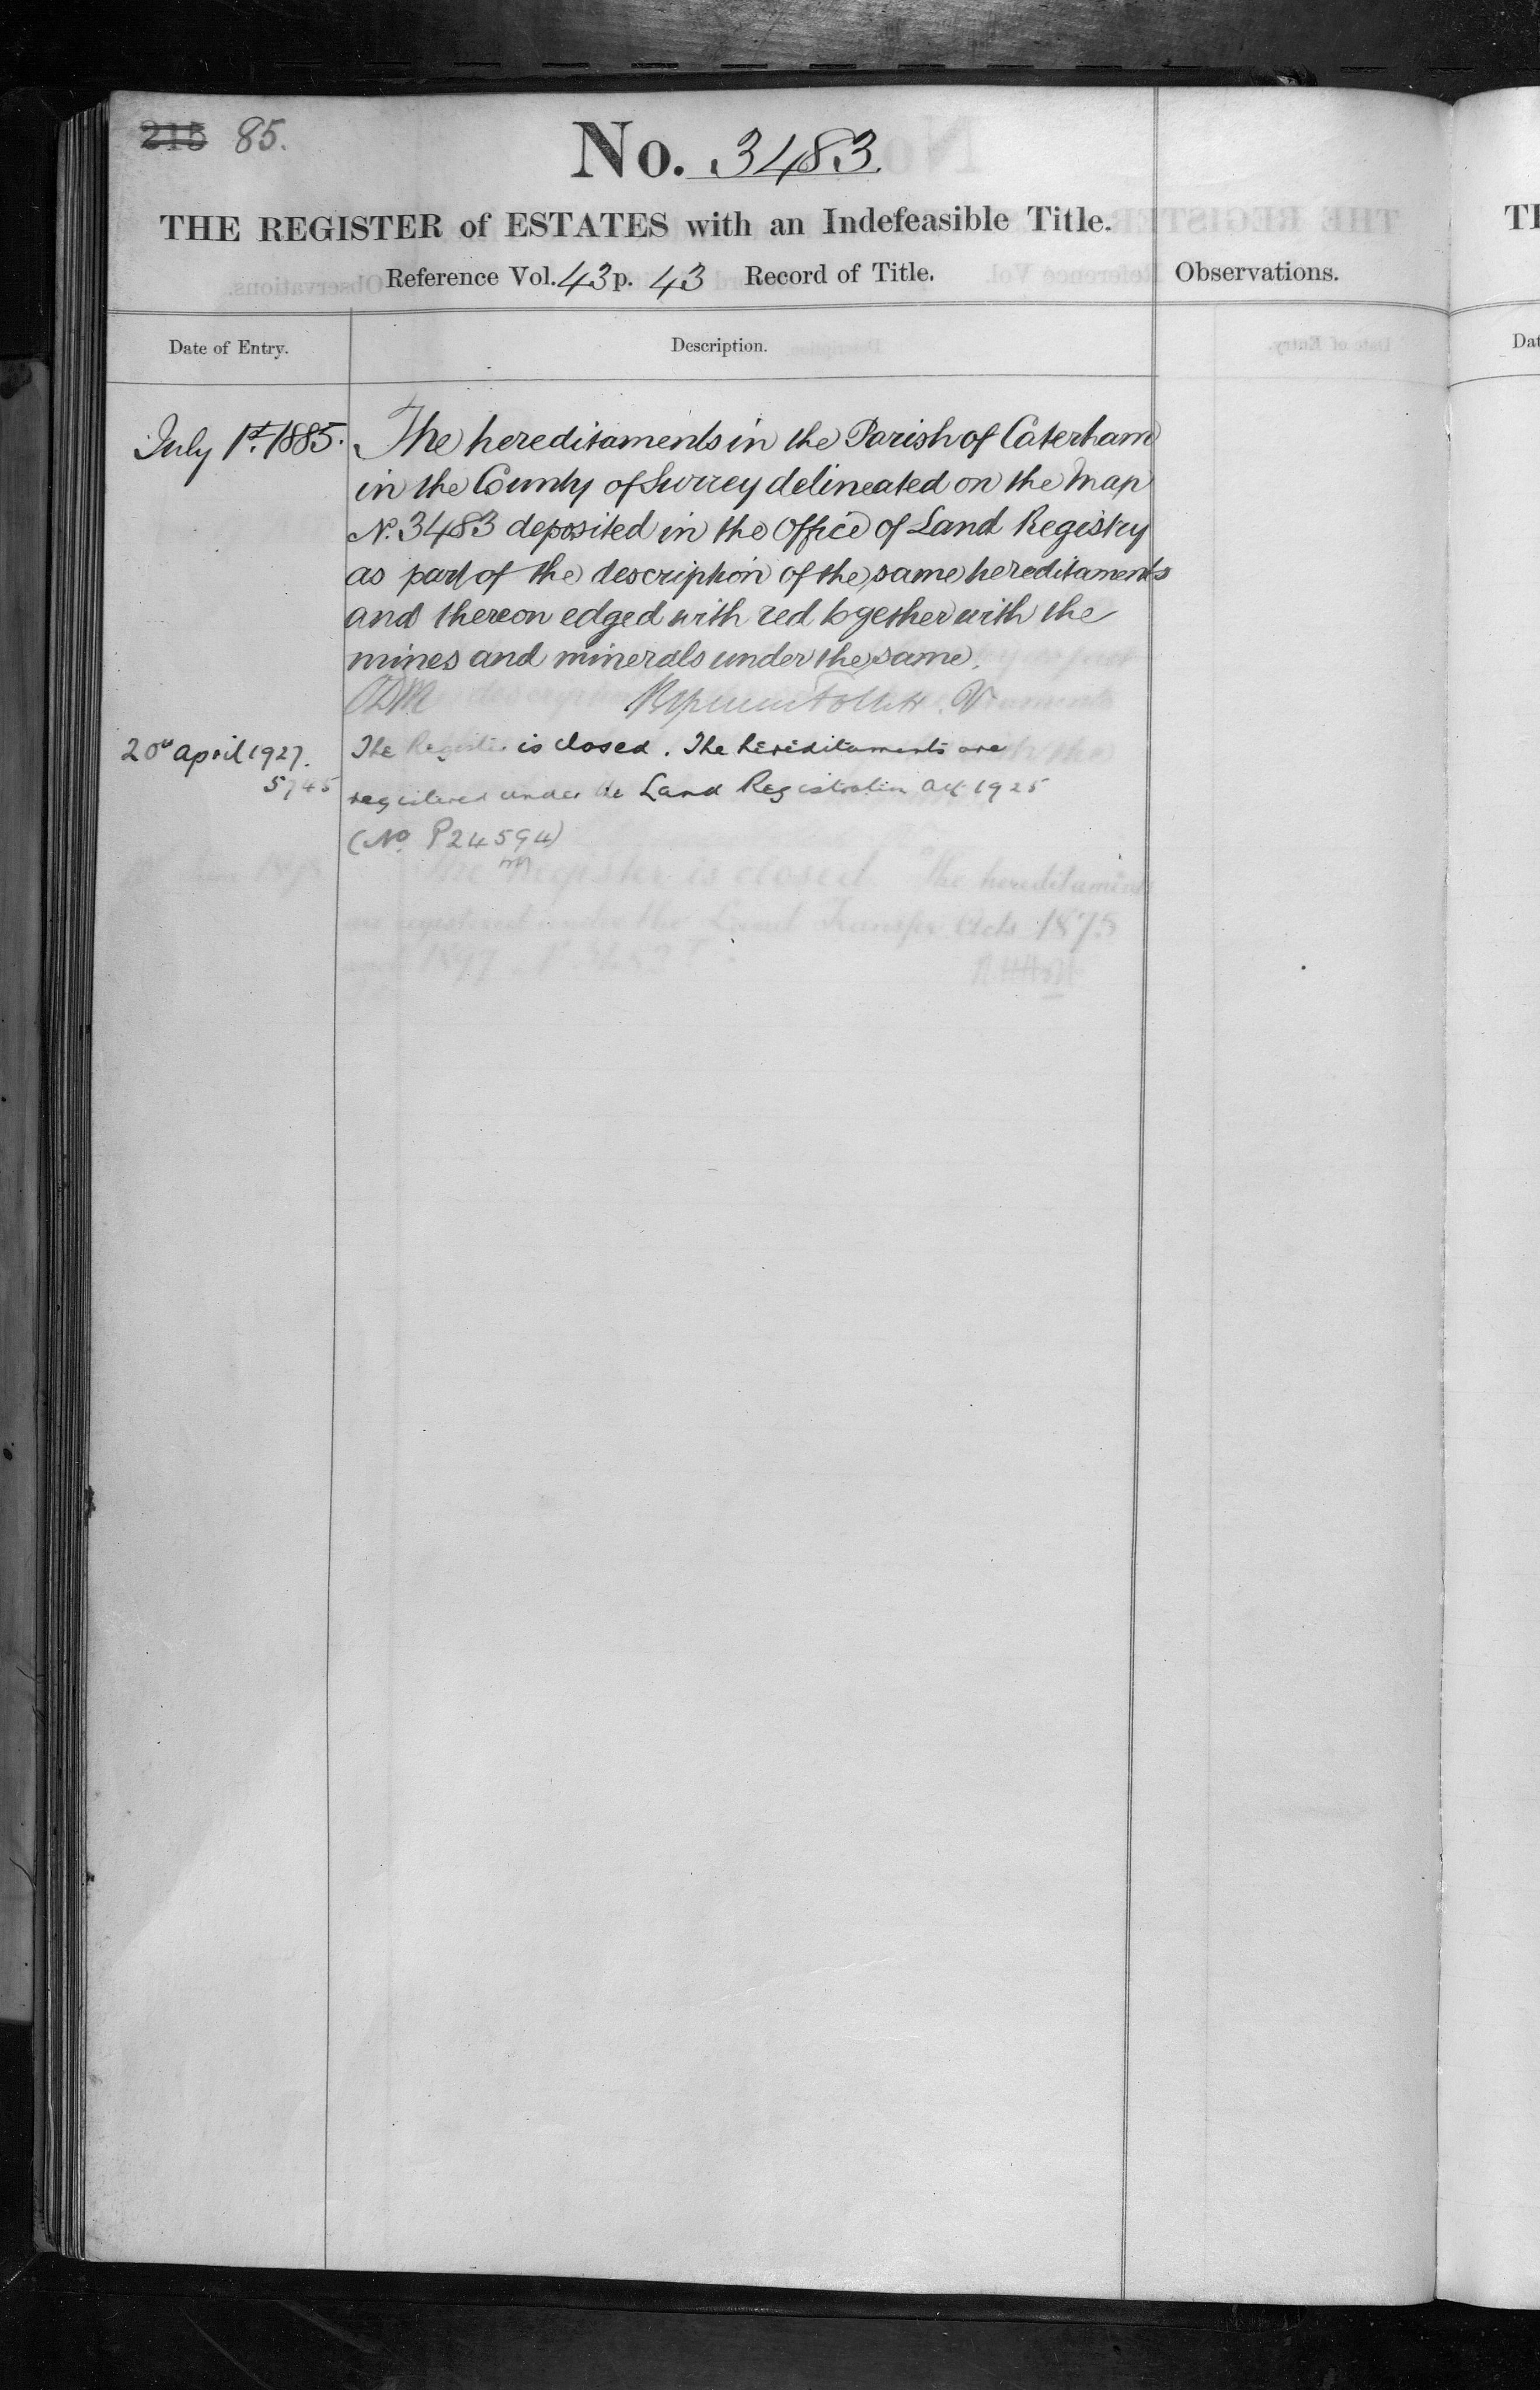 215 85.
No. 3483.
THE REGISTER of ESTATES with an Indefeasible Title.
Reference Vol. 43 p. 43 Record of Title.
Observations.
Date of Entry.
Description.
July 1st. 1885.
The hereditaments in the Parish of Caterham
in the County of Surrey delineated on the Map
No. 3483 deposited in the Office of Land Registry
as part of the description of the same hereditaments
and thereon edged with red together with the
mines and minerals under the same.
20th April 1927.
5745
The Register is closed. The hereditaments are
registered under the Land Registration Act 1925
(No. P24594)
The Register is closed. The hereditaments
are registered under the Land Transfer Acts 1875
and 1897